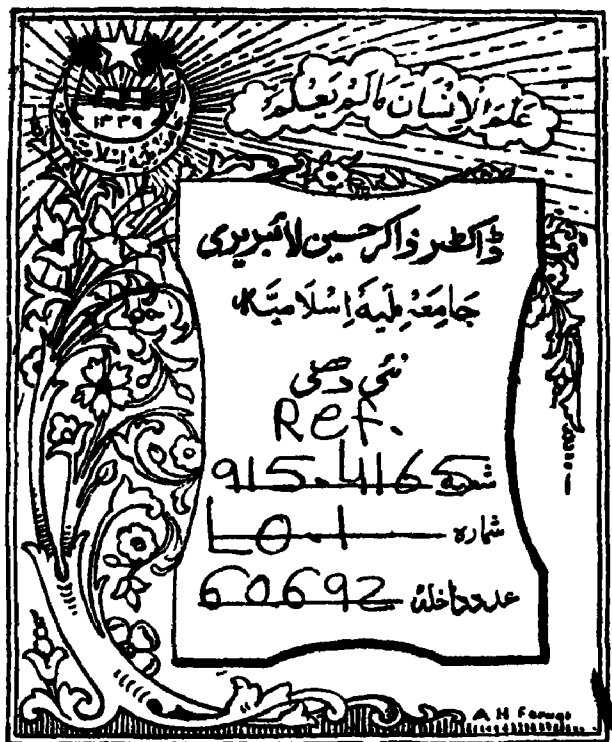 ۱۳۳۹
عَلَّمَ الْاِنْسَانَ مَا لَمْ يَعْلَمْ
ڈاکٹر ذاکر حسین لائبریری
جَامِعَہ مِلّیہ اِسْلَامیَہ
نئی دھلی
Ref.
915.4165
شمارہ LO.1
عدد داخلہ 60692
A H Faruqi